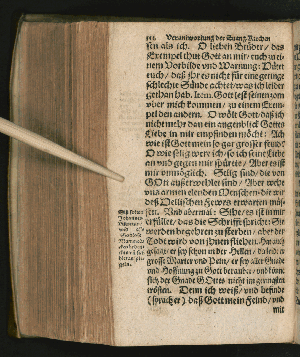 Verantwortung der Evang. Kirchen
sen als ich. O lieben Brüder / das
Exempel thut Gott an mir / euch zu ei-
nem Vorbilde und Warnung: Hütet
euch / daß ihr es nicht für eine geringe
schlechte Sünde achtet / was ich leider
gethan hab. Item. Gott lest seinen zorn
uber mich kommen / zu einem Exem-
pel den andern. O wölt Gott daß ich
nicht mehr dan ein augenblick Gottes
Liebe in mir empfinden möcht: Ach
wie ist Gott mein so gar grosser feind?
O wie selig wer ich / so ich seine Liebe
an und gegen mir spürete / Aber es ist
mir unmöglich. Selig sind / die von
GOtt außerwehlet sind / Aber wehe
uns armen elenden Menschen / die wir
deß Hellischen Fewrs erwarten müs-
sen. Und abermal: Sihe / es ist in mir
erfüllet / das die Schrifft spricht: Sie
werden begehren zu sterben / aber der
Todt wird von ihnen fliehen.
gesaget / er sey schon in der Hellen /
grosse Marter und Pein / er sey aller Gnade
und Hoffnung zu Gott beraubet / und könne
sich der Gnade GOttes nicht im geringsten
trösten. Denn ich weiß / und befinde
(sprach er) daß Gott mein Feind / und
mit